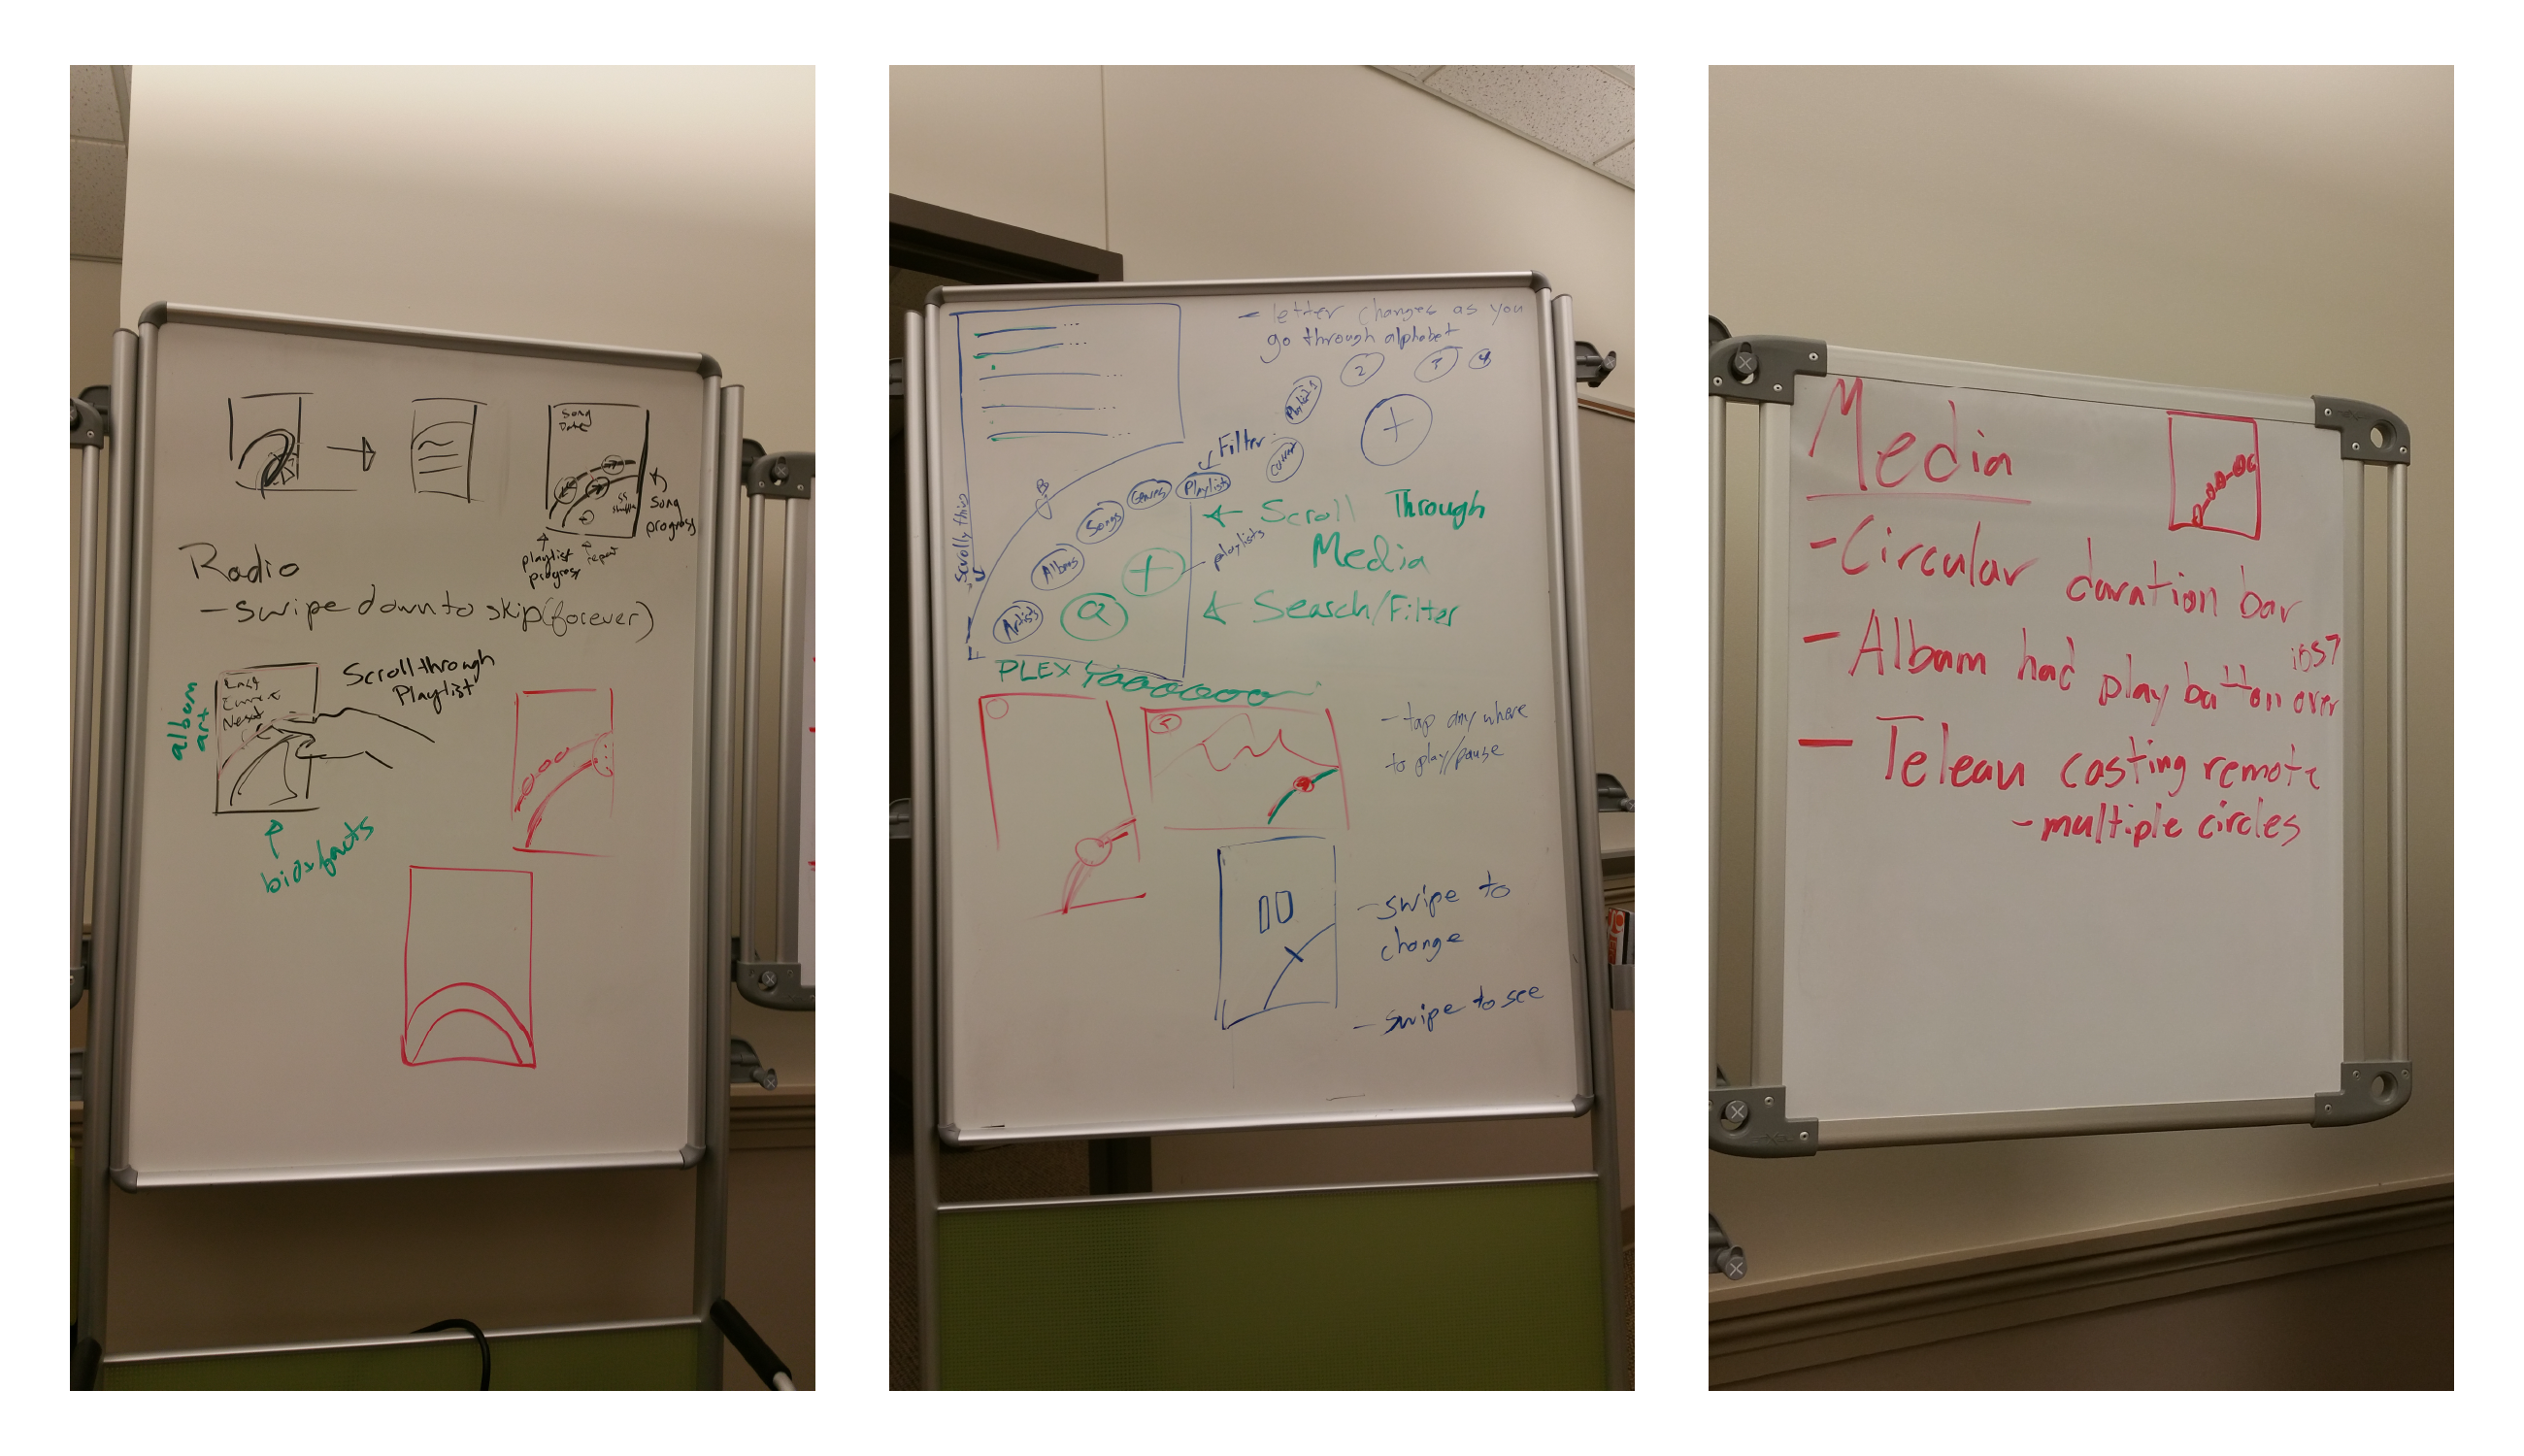 Song
Data
Song
progress
playlist
progress
repeat
shuffle
Radio
- swipe down to skip (forever)
Scroll through
Playlist
album
art
Last
Current
Next
bios/facts
- letter changes as you
go through alphabet
2
3
4
Playlists
+
Filter
Playlists
Genres
Songs
Albums
Artists
B
Scrolly this
playlists
+
Q
Scroll Through
Media
Search/Filter
PLEX
- tap anywhere
to play/pause
- swipe to
change
- swipe to see
Media
- Circular duration bar
- Album had play button over
iOS7
- Telean casting remote
- multiple circles